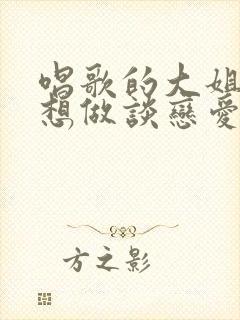 唱歌的大姐
想做談戀愛
方之影